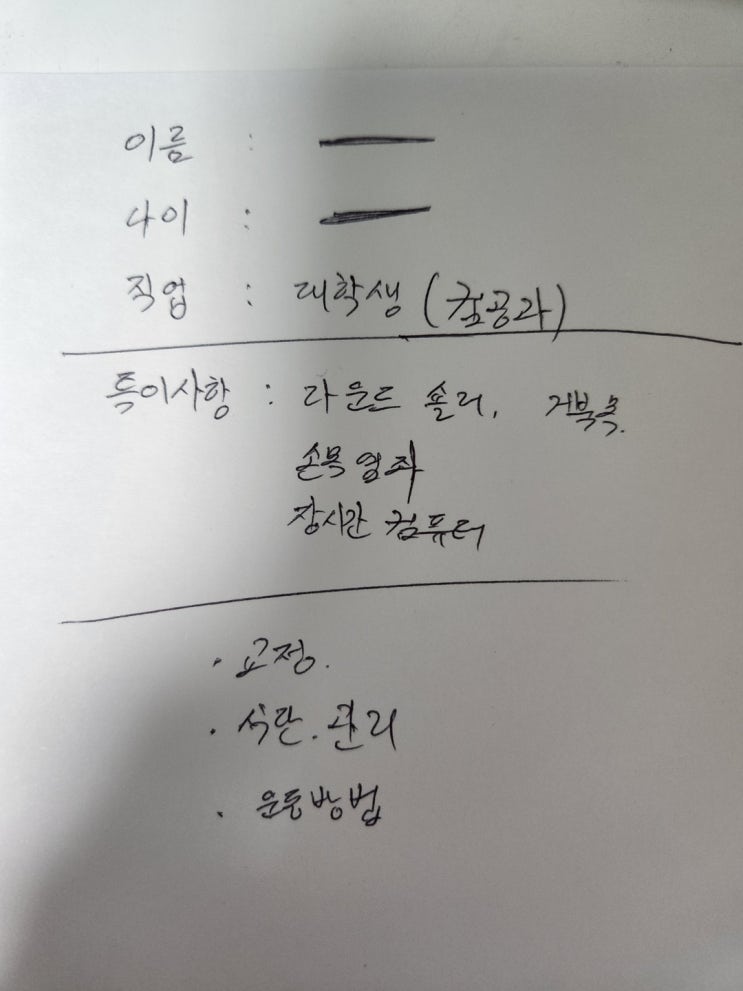 이름 :
나이 :
직업 : 대학생 (컴공과)
특이사항 : 라운드 숄더, 거북목.
손목 염좌
장시간 컴퓨터
· 교정.
· 식단. 관리
· 운동방법